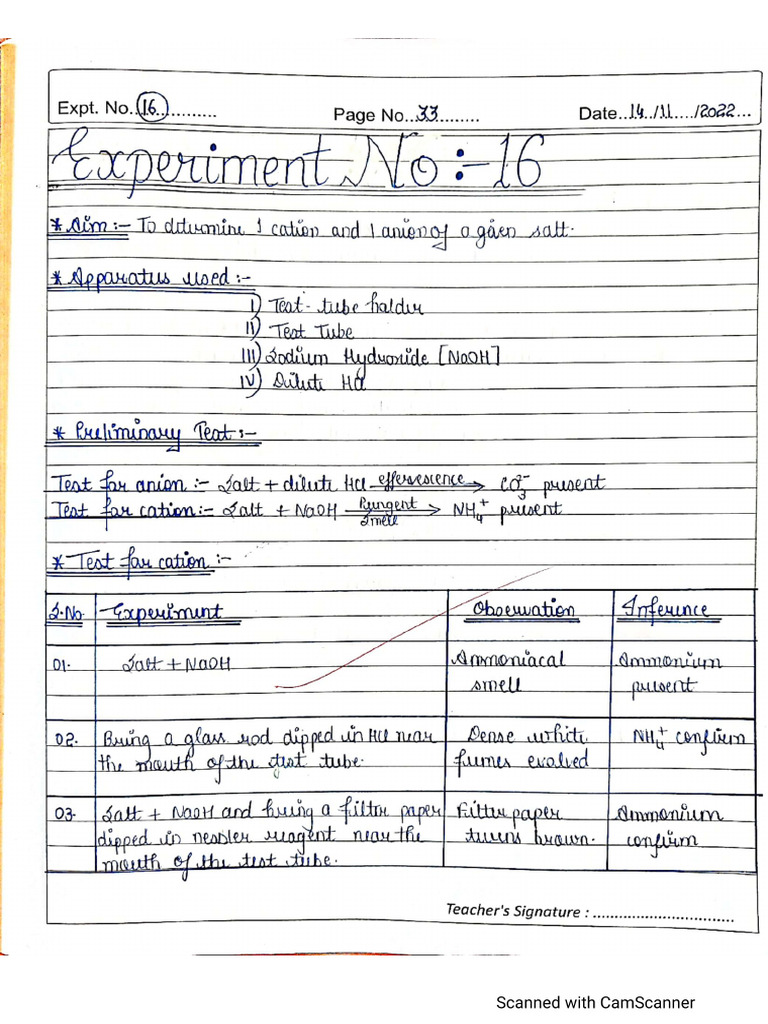 Expt. No. 16
Page No. 33
Date 14/11/2022
Experiment No :- 16
* Aim :- To determine 1 cation and 1 anion of a given salt.
* Apparatus used :-
I) Test-tube holder
II) Test Tube
III) Sodium Hydroxide [NaOH]
IV) Dilute HCl
* Preliminary Test :-
Test for anion :- Salt + dilute HCl effervescence → CO₃⁻ present
Test for cation :- Salt + NaOH Pungent Smell → NH₄⁺ present
* Test for cation :-
S.No. Experiment Observation Inference
01. Salt + NaOH Ammoniacal Ammonium
smell present
02. Bring a glass rod dipped in HCl near Dense white NH₄⁺ confirm
the mouth of the test tube. fumes evolved
03. Salt + NaOH and bring a filter paper Filter paper Ammonium
dipped in nessler reagent near the turns brown. confirm
mouth of the test tube.
Teacher's Signature : ................................
Scanned with CamScanner